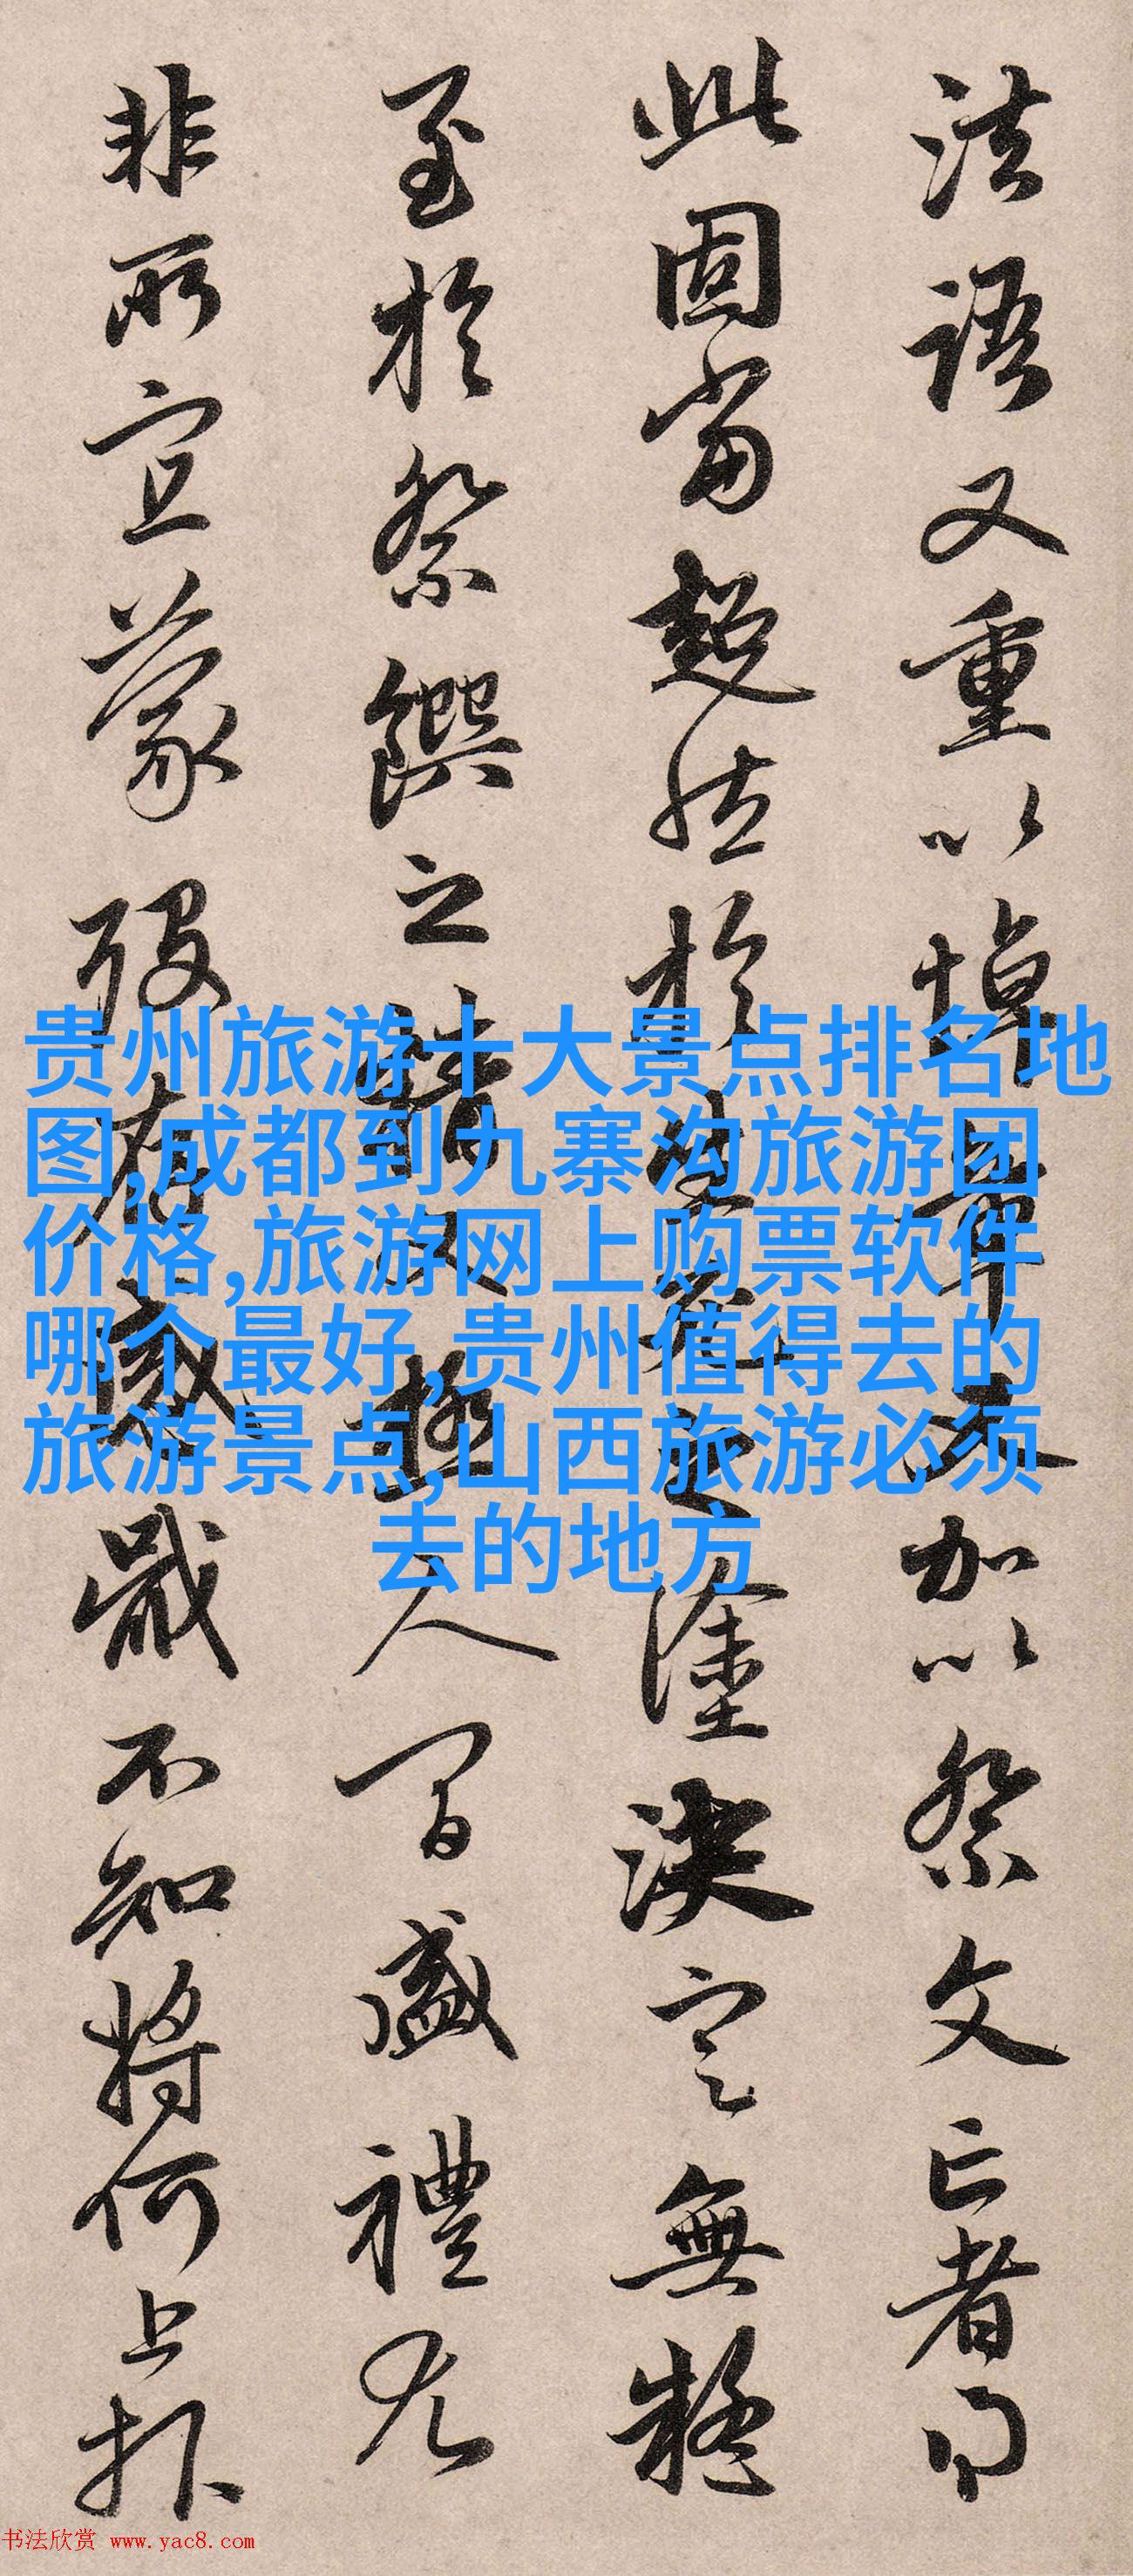 法語又重以悼章又加以祭文亡者得
此固當超然於生死之塗決定無疑
至於祭饌之精又極人間盛禮尤
非所宜蒙歿存感戢不知將何上報
贵州旅游十大景点排名地
图,成都到九寨沟旅游团
价格,旅游网上购票软件
哪个最好,贵州值得去的
旅游景点,山西旅游必须
去的地方
书法欣赏 www.yac8.com